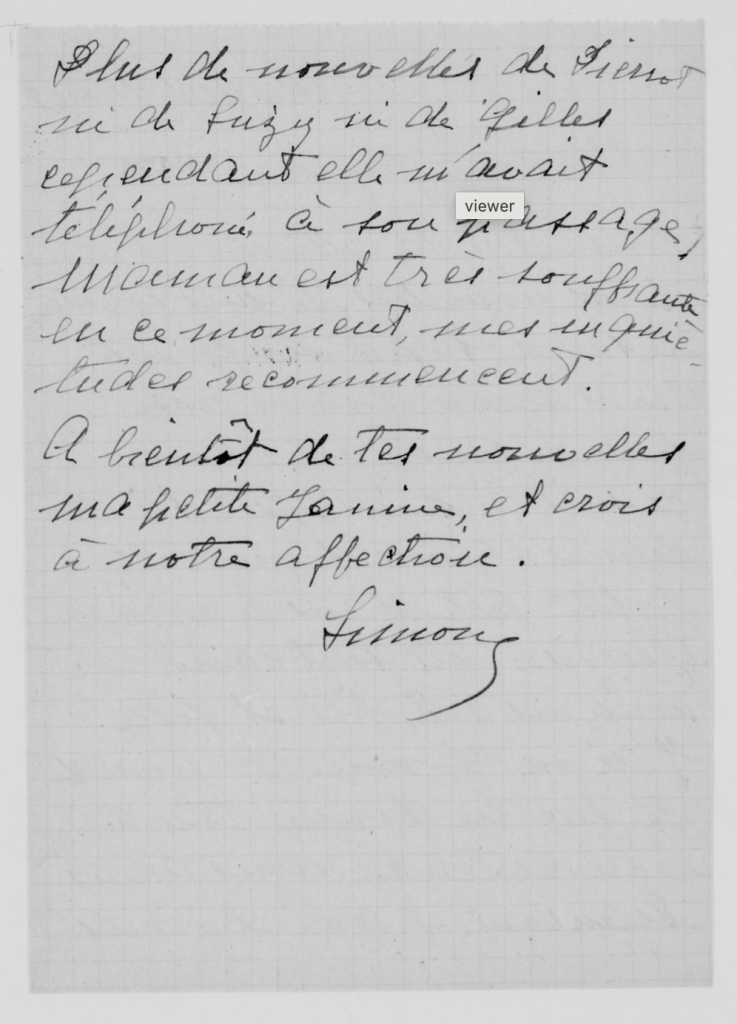 Plus de nouvelles de Pierrot
ni de Suzy ni de Gilles
cependant elle m'avait
téléphoné, à son passage,
viewer
Maman est très souffrante
en ce moment, mes inquié-
tudes recommencent.
A bientôt de tes nouvelles
ma petite Janine, et crois
à notre affection.
Simone